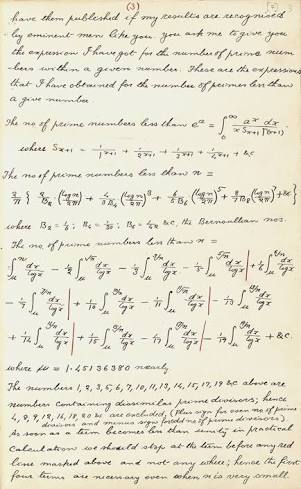 (3)
have them published if my results are recognised
by eminent men like you. you ask me to give you
the expression I have got for the number of prime num-
bers within a given number. These are the expressions
that I have obtained for the number of primes less than
a give number.
The no of prime numbers less than e^a = ∫_0^∞ a^x dx / (x S_{x+1} Γ(x+1)).
where S_{x+1} = 1/1^{x+1} + 1/2^{x+1} + 1/3^{x+1} + 1/4^{x+1} + &c
The no of prime numbers less than n =
2/π { 2/B_2 (log n/2π) + 4/3B_4 (log n/2π)^3 + 6/5B_6 (log n/2π)^5 + 8/7B_8 (log n/2π)^7 + &c }
where B_2 = 1/6; B_4 = 1/30; B_6 = 1/42 &c, the Bernoullian nos.
The no. of prime numbers less than n =
∫_μ^n dx/log x - 1/2 ∫_μ^{√n} dx/log x - 1/3 ∫_μ^{∛n} dx/log x - 1/5 ∫_μ^{⁵√n} dx/log x | + 1/6 ∫_μ^{⁶√n} dx/log x
- 1/7 ∫_μ^{⁷√n} dx/log x | + 1/10 ∫_μ^{¹⁰√n} dx/log x - 1/11 ∫_μ^{¹¹√n} dx/log x | - 1/13 ∫_μ^{¹³√n} dx/log x
+ 1/14 ∫_μ^{¹⁴√n} dx/log x | + 1/15 ∫_μ^{¹⁵√n} dx/log x - 1/17 ∫_μ^{¹⁷√n} dx/log x | - 1/19 ∫_μ^{¹⁹√n} dx/log x + &c.
where μ = 1.45136380 nearly.
The numbers 1, 2, 3, 5, 6, 7, 10, 11, 13, 14, 15, 17, 19 &c above are
numbers containing dissimilar prime divisors; hence
4, 8, 9, 12, 16, 18, 20 &c are excluded, (Plus sign for even no of prime
divisors and minus sign for odd no of prime divisors).
As soon as a term becomes less than unity in practical
calculation we should stop at the term before any red
line marked above and not any where; hence the first
four terms are necessary even when n is very small.